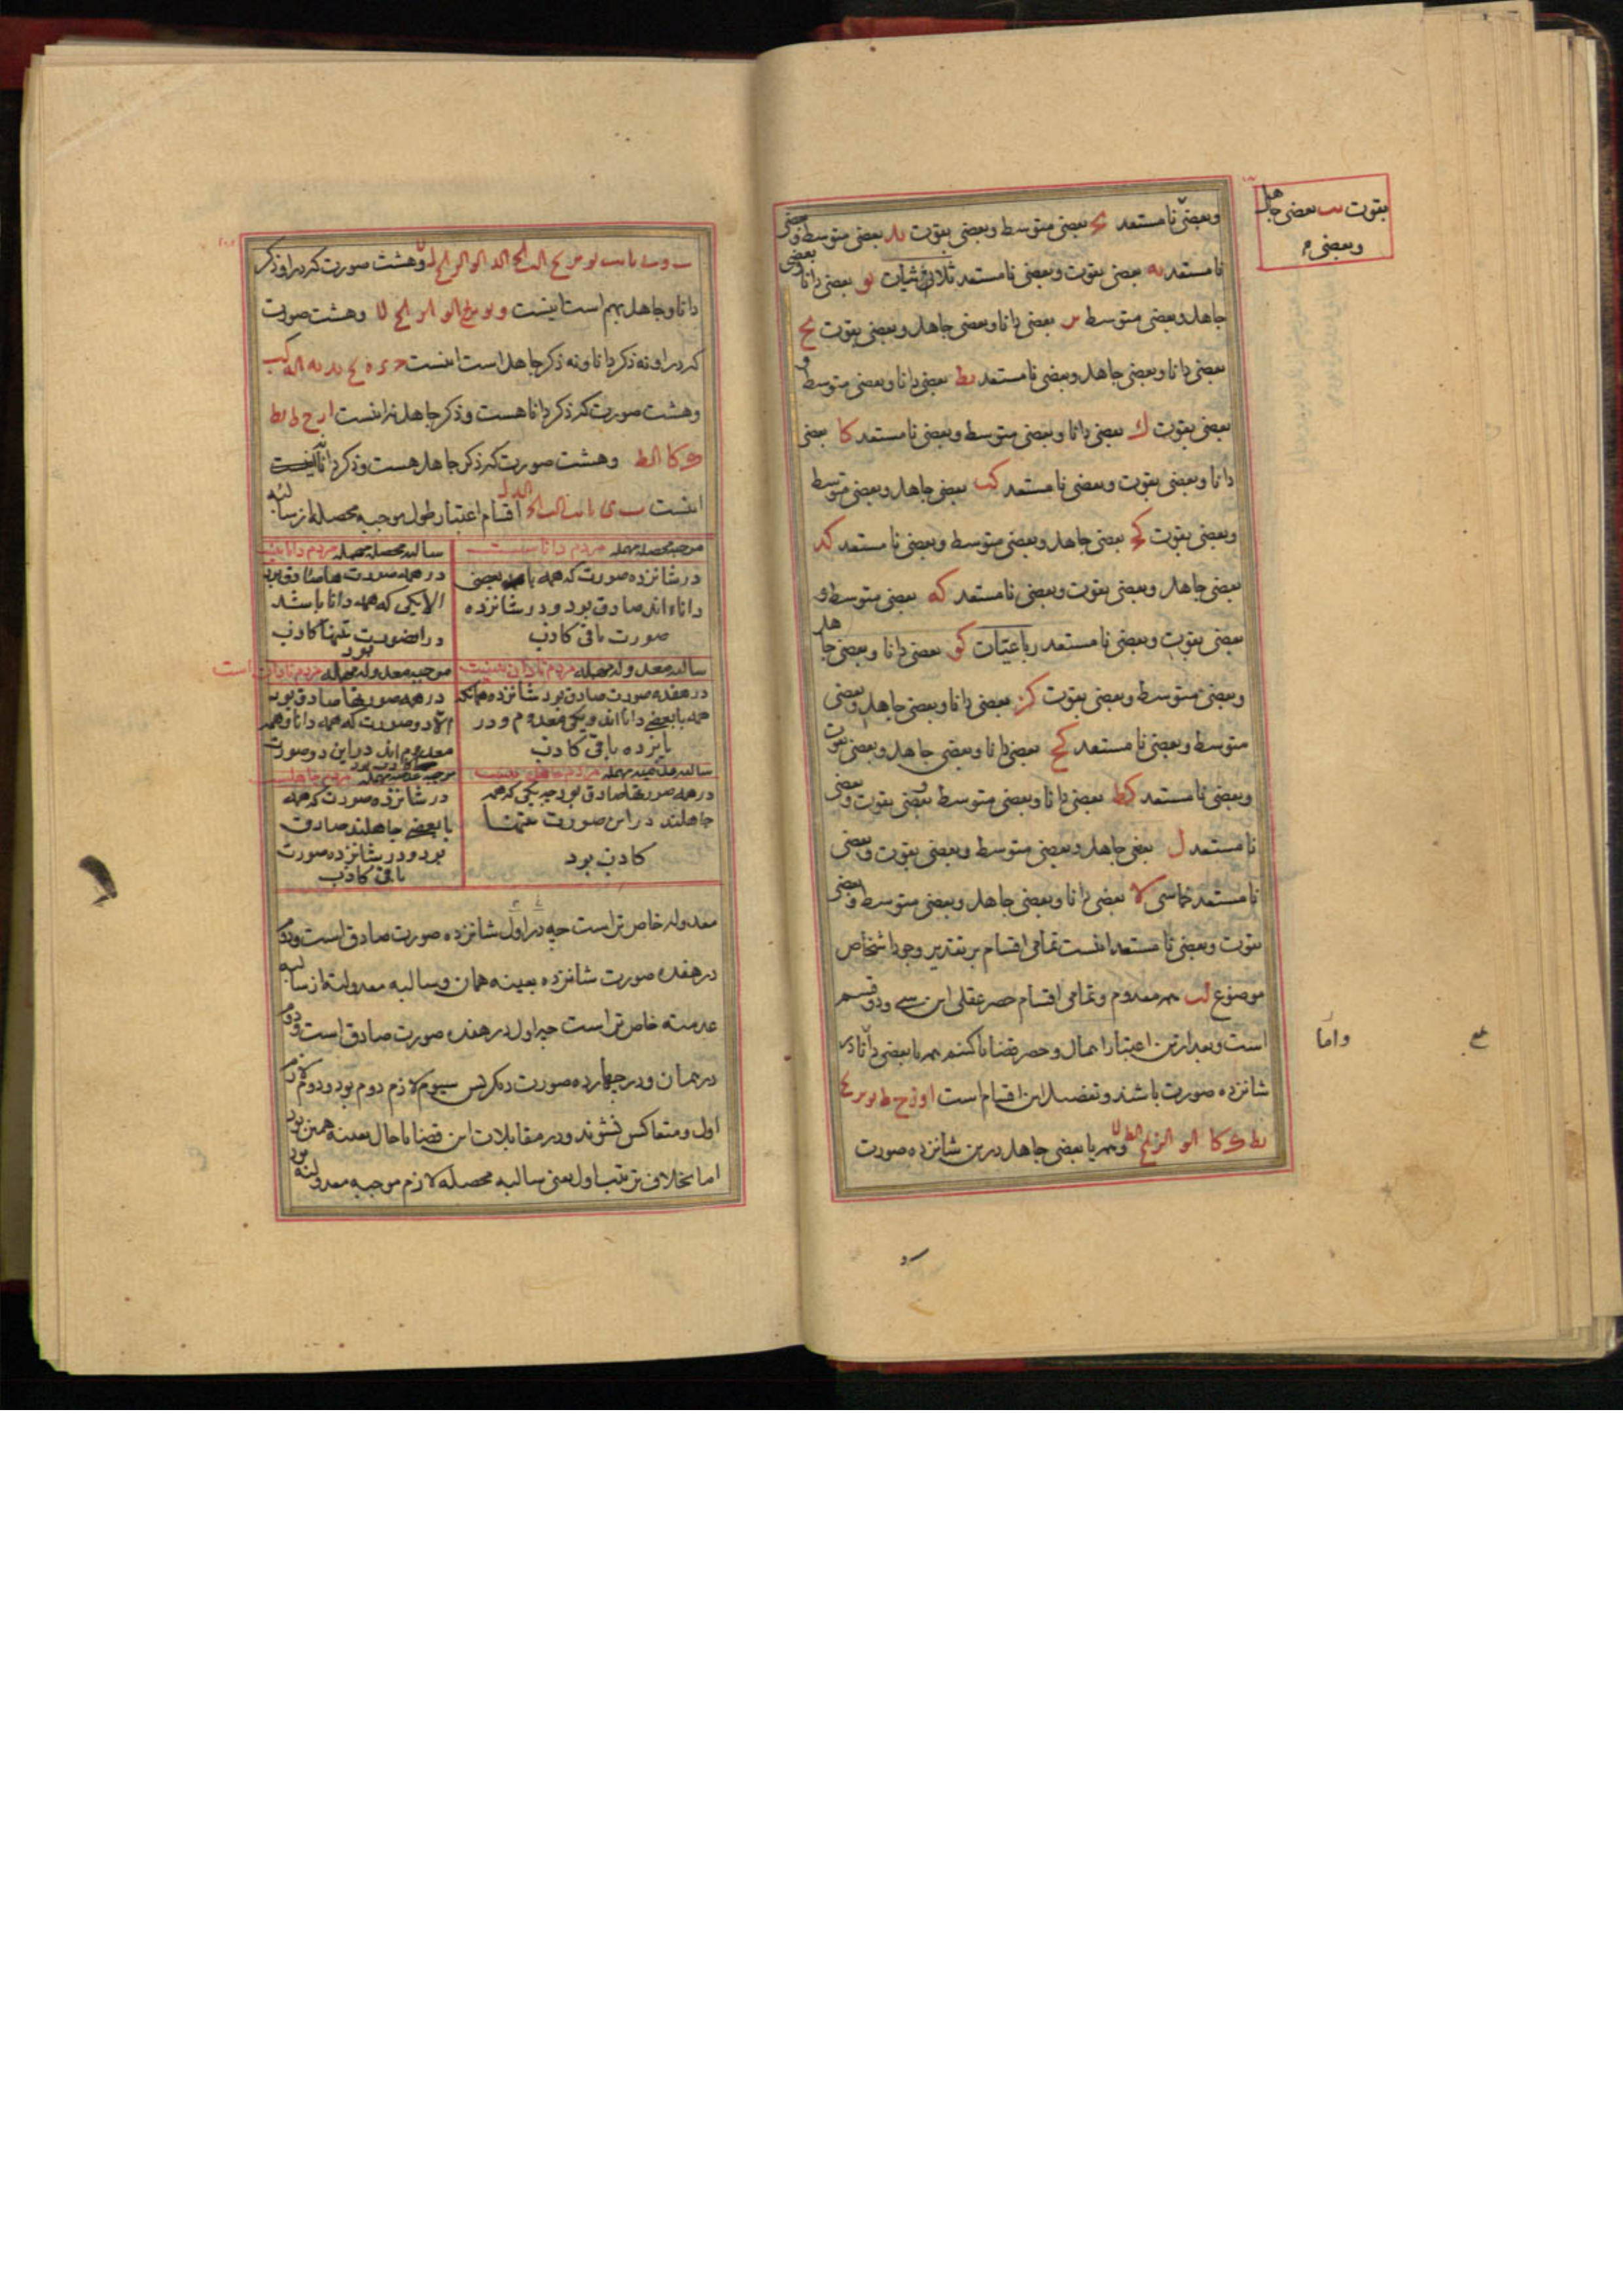 بقوت یب بعضی جاهل
وبعضی م
وبعضی نامستعد یج بعضی متوسط وبعضی بقوت ید بعضی متوسط وبعضی
نامستعد یه بعضی بقوت وبعضی نامستعد ثلاثیات یو بعضی دانا وبعضی
جاهل وبعضی متوسط یز بعضی دانا وبعضی جاهل وبعضی بقوت یح
بعضی دانا وبعضی جاهل وبعضی نامستعد یط بعضی دانا وبعضی متوسط و
بعضی بقوت ک بعضی دانا وبعضی متوسط وبعضی نامستعد کا بعضی
دانا وبعضی بقوت وبعضی نامستعد کب بعضی جاهل وبعضی متوسط
وبعضی بقوت کج بعضی جاهل وبعضی متوسط وبعضی نامستعد کد
بعضی جاهل وبعضی بقوت وبعضی نامستعد که بعضی متوسط و
بعضی بقوت وبعضی نامستعد رباعیات کو بعضی دانا وبعضی جاهل
وبعضی متوسط وبعضی بقوت کز بعضی دانا وبعضی جاهل وبعضی
متوسط وبعضی نامستعد کح بعضی دانا وبعضی جاهل وبعضی بقوت
وبعضی نامستعد کط بعضی دانا وبعضی متوسط وبعضی بقوت وبعضی
نامستعد ل بعضی جاهل وبعضی متوسط وبعضی بقوت وبعضی
نامستعد خماسی لا بعضی دانا وبعضی جاهل وبعضی متوسط وبعضی
بقوت وبعضی نامستعد اینست تمامی اقسام بر تقدیر وجود اشخاص
موضوع لب همه معدوم وتمامی اقسام حصر عقلی این سی ودو قسم
است وبعد ازین اعتبار اهمال وحصر قضایا کنیم همه یا بعضی دانا در
واما
شانزده صورت باشند وتفصیل این اقسام است ا و ز ح ط یو یز یح
یط ک کا الو الز الح الط ل وهمه یا بعضی جاهل درین شانزده صورت
وهشت صورت که در او ذکر
دانا وجاهل بهم است اینست و یو یز یح الو الز الح لا وهشت صورت
که در او نه ذکر دانا ونه ذکر جاهل است اینست ج د ه یج ید یه الہ کب
وهشت صورت که ذکر دانا هست وذکر جاهل نه اینست ا ز ح ط یط
ک کا الط وهشت صورت که ذکر جاهل هست وذکر دانا نه
اینست اقسام اعتبار طول موجبه محصله از سالبه
موجبه محصله مهمله مردم دانا است
در شانزده صورت که همه یا بعضی
دانا اند صادق بود و در شانزده
صورت باقی کاذب
سالبه محصله مهمله مردم دانا نیست
در همه صورت ها صادق بود
الا یکی که همه دانا باشند
در ان صورت تنها کاذب
بود
سالبه معدوله مهمله مردم نادان نیست
در هفده صورت صادق بود شانزده همانکه
همه یا بعضی دانا اند ویکی معدوم و در
پانزده باقی کاذب
موجبه معدوله مهمله مردم نادان است
در همه صورتها صادق بود
الا دو صورت که همه دانا وهمه
معدوم اند در این دو صورت
کاذب بود
سالبه عدمیه مهمله مردم جاهل نیست
در همه صورتها صادق بود جز یکی که همه
جاهلند در این صورت تنها
کاذب بود
موجبه عدمیه مهمله مردم جاهلست
در شانزده صورت که همه
یا بعضی جاهلند صادق
بود و در شانزده صورت
باقی کاذب
معدوله خاص تر است چه در اول شانزده صورت صادق است ودوم
در هفده صورت شانزده بعینه همان وسالبه معدوله از سالبه
عدمیه خاص تر است چه اول در هفده صورت صادق است ودوم
در همان ودر چهارده صورت دیگر پس سیوم لازم دوم بود ودوم لازم
اول ومتعاکس نشوند ودر مقابلات این قضایا حال بعینه همین بود
اما بخلاف ترتیب اول یعنی سالبه محصله لازم موجبه معدوله بود